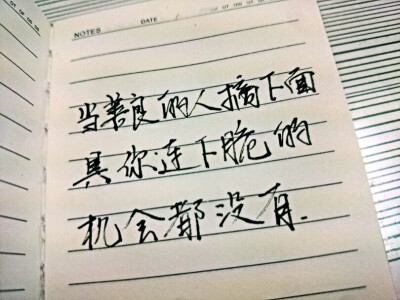 NOTES DATE
当善良的人摘下面
具你连下脆的
机会都没有.